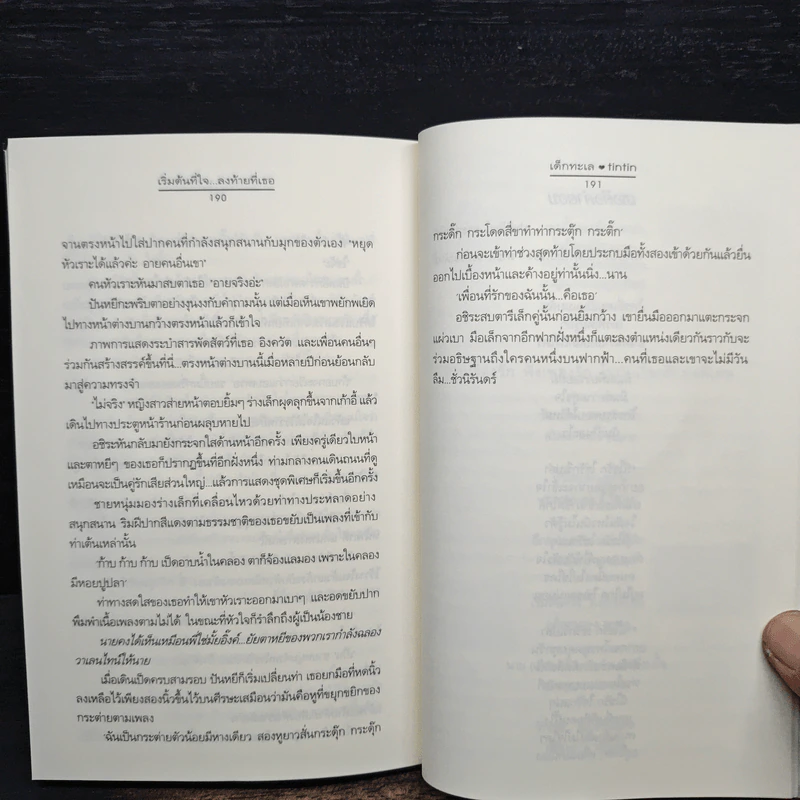 เริ่มต้นที่ใจ...ลงท้ายที่เธอ
190
จานตรงหน้าไปใส่ปากคนที่กำลังสนุกสนานกับมุกของตัวเอง 'หยุด
หัวเราะได้แล้วค่ะ อายคนอื่นเขา'
คนหัวเราะหันมาสบตาเธอ 'อายจริงอ่ะ'
ปันหยีกะพริบตาอย่างงุนงงกับคำถามนั้น แต่เมื่อเห็นเขาพยักพเยิด
ไปทางหน้าต่างบานกว้างตรงหน้าแล้วก็เข้าใจ
ภาพการแสดงระบำสารพัดสัตว์ที่เธอ อิงควัต และเพื่อนคนอื่นๆ
ร่วมกันสร้างสรรค์ขึ้นที่นี่...ตรงหน้าต่างบานนี้เมื่อหลายปีก่อนย้อนกลับ
มาสู่ความทรงจำ
'ไม่จริง' หญิงสาวส่ายหน้าตอบยิ้มๆ ร่างเล็กผุดลุกขึ้นจากเก้าอี้ แล้ว
เดินไปทางประตูหน้าร้านก่อนผลุบหายไป
อชิระหันกลับมายังกระจกใสด้านหน้าอีกครั้ง เพียงครู่เดียวใบหน้า
และตาหยีๆ ของเธอก็ปรากฏขึ้นที่อีกฝั่งหนึ่ง ท่ามกลางคนเดินถนนที่ดู
เหมือนจะเป็นคู่รักเสียส่วนใหญ่...แล้วการแสดงชุดพิเศษก็เริ่มขึ้นอีกครั้ง
ชายหนุ่มมองร่างเล็กที่เคลื่อนไหวด้วยท่าทางประหลาดอย่าง
สนุกสนาน ริมฝีปากสีแดงตามธรรมชาติของเธอขยับเป็นเพลงที่เข้ากับ
ท่าเต้นเหล่านั้น
'ก้าบ ก้าบ ก้าบ เป็ดอาบน้ำในคลอง ตาก็จ้องแลมอง เพราะในคลอง
มีหอยปูปลา'
ท่าทางสดใสของเธอทำให้เขาหัวเราะออกมาเบาๆ และอดขยับปาก
พึมพำเนื้อเพลงตามไม่ได้ ในขณะที่หัวใจก็รำลึกถึงผู้เป็นน้องชาย
นายคงได้เห็นเหมือนพี่ใช่มั้ยอิ๊งค์...ยัยตาหยีของพวกเรากำลังฉลอง
วาเลนไทน์ให้นาย
เมื่อเดินเป็ดครบสามรอบ ปันหยีก็เริ่มเปลี่ยนท่า เธอยกมือที่หดนิ้ว
ลงเหลือไว้เพียงสองนิ้วขึ้นไว้บนศีรษะเสมือนว่ามันคือหูที่ขยุกขยิกของ
กระต่ายตามเพลง
'ฉันเป็นกระต่ายตัวน้อยมีหางเดียว สองหูยาวสั่นกระตุ๊ก กระตุ๊ก
เด็กทะเล ♥ tintin
191
กระดิ๊ก กระโดดสี่ขาทำท่ากระตุ๊ก กระติ๊ก'
ก่อนจะเข้าท่าช่วงสุดท้ายโดยประกบมือทั้งสองเข้าด้วยกันแล้วยื่น
ออกไปเบื้องหน้าและค้างอยู่ท่านั้นนิ่ง...นาน
'เพื่อนที่รักของฉันนั้น...คือเธอ'
อชิระสบตารีเล็กคู่นั้นก่อนยิ้มกว้าง เขายื่นมือออกมาแตะกระจก
แผ่วเบา มือเล็กจากอีกฟากฝั่งหนึ่งก็แตะลงตำแหน่งเดียวกันราวกับจะ
ร่วมอธิษฐานถึงใครคนหนึ่งบนฟากฟ้า...คนที่เธอและเขาจะไม่มีวัน
ลืม...ชั่วนิรันดร์